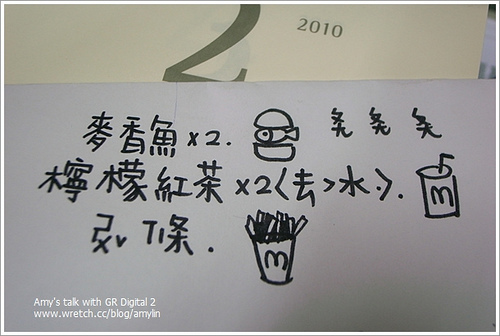 2
2010
麥香魚x2.
檸檬紅茶x2(去冰).
條.
Amy's talk with GR Digital 2
www.wretch.cc/blog/amylin